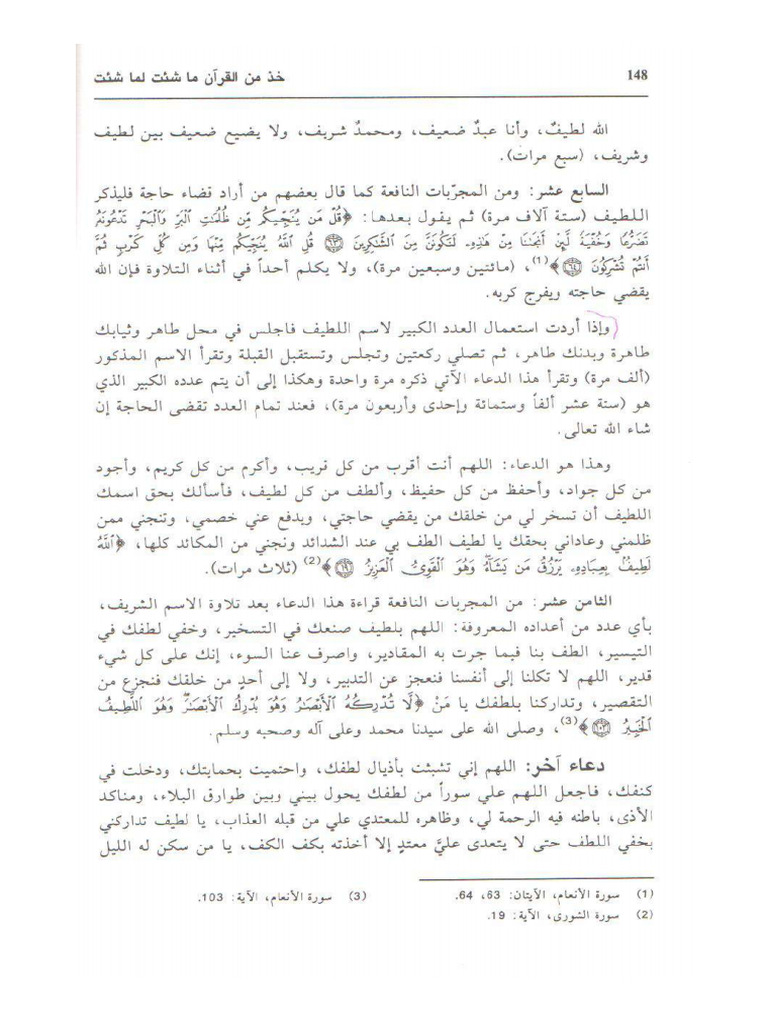 148 خذ من القرآن ما شئت لما شئت
الله لطيفٌ، وأنا عبدٌ ضعيف، ومحمدٌ شريف، ولا يضيع ضعيف بين لطيف
وشريف، (سبع مرات).
السابع عشر: ومن المجرّبات النافعة كما قال بعضهم من أراد قضاء حاجة فليذكر
اللطيف (ستة آلاف مرة) ثم يقول بعدها: ﴿قُلْ مَن يُنَجِّيكُم مِّن ظُلُمَٰتِ ٱلْبَرِّ وَٱلْبَحْرِ تَدْعُونَهُۥ
تَضَرُّعًا وَخُفْيَةً لَّئِنْ أَنجَىٰنَا مِنْ هَٰذِهِۦ لَنَكُونَنَّ مِنَ ٱلشَّٰكِرِينَ ﴿٦٣﴾ قُلِ ٱللَّهُ يُنَجِّيكُم مِّنْهَا وَمِن كُلِّ كَرْبٍ ثُمَّ
أَنتُمْ تُشْرِكُونَ ﴿٦٤﴾﴾(1)، (مائتين وسبعين مرة)، ولا يكلم أحداً في أثناء التلاوة فإن الله
يقضي حاجته ويفرج كربه.
وإذا أردت استعمال العدد الكبير لاسم اللطيف فاجلس في محل طاهر وثيابك
طاهرة وبدنك طاهر، ثم تصلي ركعتين وتجلس وتستقبل القبلة وتقرأ الاسم المذكور
(ألف مرة) وتقرأ هذا الدعاء الآتي ذكره مرة واحدة وهكذا إلى أن يتم عدده الكبير الذي
هو (ستة عشر ألفاً وستمائة وإحدى وأربعون مرة)، فعند تمام العدد تقضى الحاجة إن
شاء الله تعالى.
وهذا هو الدعاء: اللهم أنت أقرب من كل قريب، وأكرم من كل كريم، وأجود
من كل جواد، وأحفظ من كل حفيظ، وألطف من كل لطيف، فأسألك بحق اسمك
اللطيف أن تسخر لي من خلقك من يقضي حاجتي، ويدفع عني خصمي، وتنجني ممن
ظلمني وعاداني بحقك يا لطيف الطف بي عند الشدائد ونجني من المكائد كلها، ﴿ٱللَّهُ
لَطِيفٌۢ بِعِبَادِهِۦ يَرْزُقُ مَن يَشَآءُ وَهُوَ ٱلْقَوِىُّ ٱلْعَزِيزُ ﴿١٩﴾﴾(2) (ثلاث مرات).
الثامن عشر: من المجربات النافعة قراءة هذا الدعاء بعد تلاوة الاسم الشريف،
بأي عدد من أعداده المعروفة: اللهم بلطيف صنعك في التسخير، وخفي لطفك في
التيسير، الطف بنا فيما جرت به المقادير، واصرف عنا السوء، إنك على كل شيء
قدير، اللهم لا تكلنا إلى أنفسنا فنعجز عن التدبير، ولا إلى أحدٍ من خلقك فنجزع من
التقصير، وتداركنا بلطفك يا مَنْ ﴿لَّا تُدْرِكُهُ ٱلْأَبْصَٰرُ وَهُوَ يُدْرِكُ ٱلْأَبْصَٰرَ وَهُوَ ٱللَّطِيفُ
ٱلْخَبِيرُ ﴿١٠٣﴾﴾(3)، وصلى الله على سيدنا محمد وعلى آله وصحبه وسلم.
دعاء آخر: اللهم إني تشبثت بأذيال لطفك، واحتميت بحمايتك، ودخلت في
كنفك، فاجعل اللهم علي سوراً من لطفك يحول بيني وبين طوارق البلاء، ومناكد
الأذى، باطنه فيه الرحمة لي، وظاهره للمعتدي علي من قبله العذاب، يا لطيف تداركني
بخفي اللطف حتى لا يتعدى عليَّ معتدٍ إلا أخذته بكف الكف، يا من سكن له الليل
(1) سورة الأنعام، الآيتان: 63، 64. (3) سورة الأنعام، الآية: 103.
(2) سورة الشورى، الآية: 19.